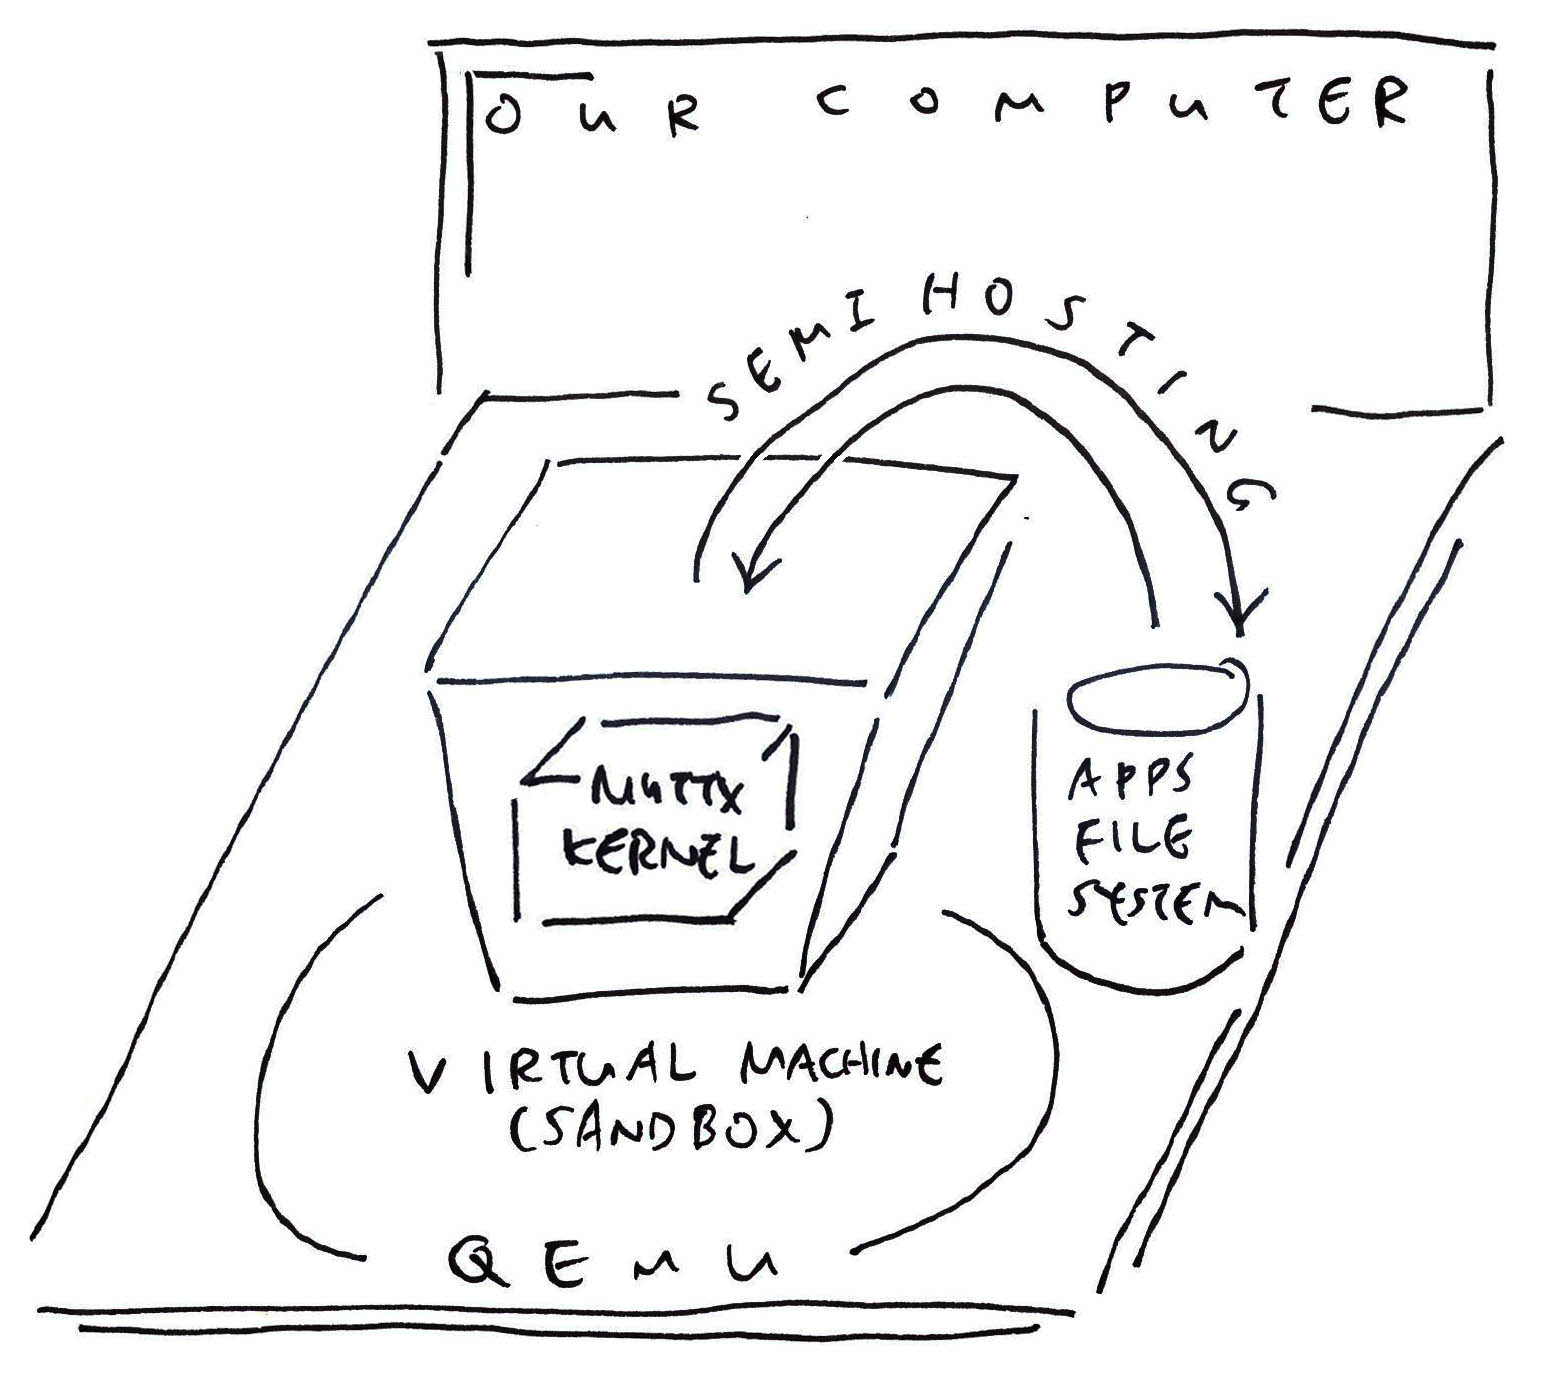 OUR COMPUTER
SEMIHOSTING
NUTTX
KERNEL
APPS
FILE
SYSTEM
VIRTUAL MACHINE
(SANDBOX)
QEMU